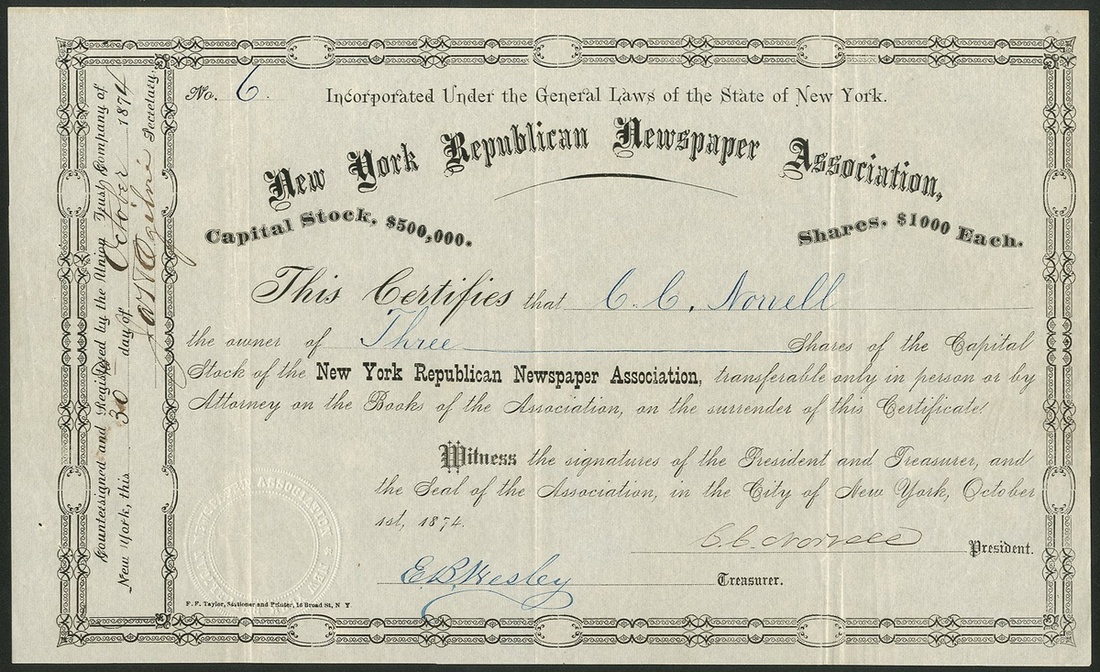 No. 6.
Incorporated Under the General Laws of the State of New York.
New York Republican Newspaper Association,
Capital Stock, $500,000.
Shares, $1000 Each.
This Certifies that C. C. Norvell
the owner of Three Shares of the Capital
Stock of the New York Republican Newspaper Association, transferable only in person or by
Attorney on the Books of the Association, on the surrender of this Certificate.
Witness the signatures of the President and Treasurer, and
the Seal of the Association, in the City of New York, October
1st, 1874.
C. C. Norvell President.
E. B. Wesley Treasurer.
F. F. Taylor, Stationer and Printer, 16 Broad St, N Y
Countersigned and Registered by the Union Trust Company of
New York, this 30 day of October 1874
Secretary.